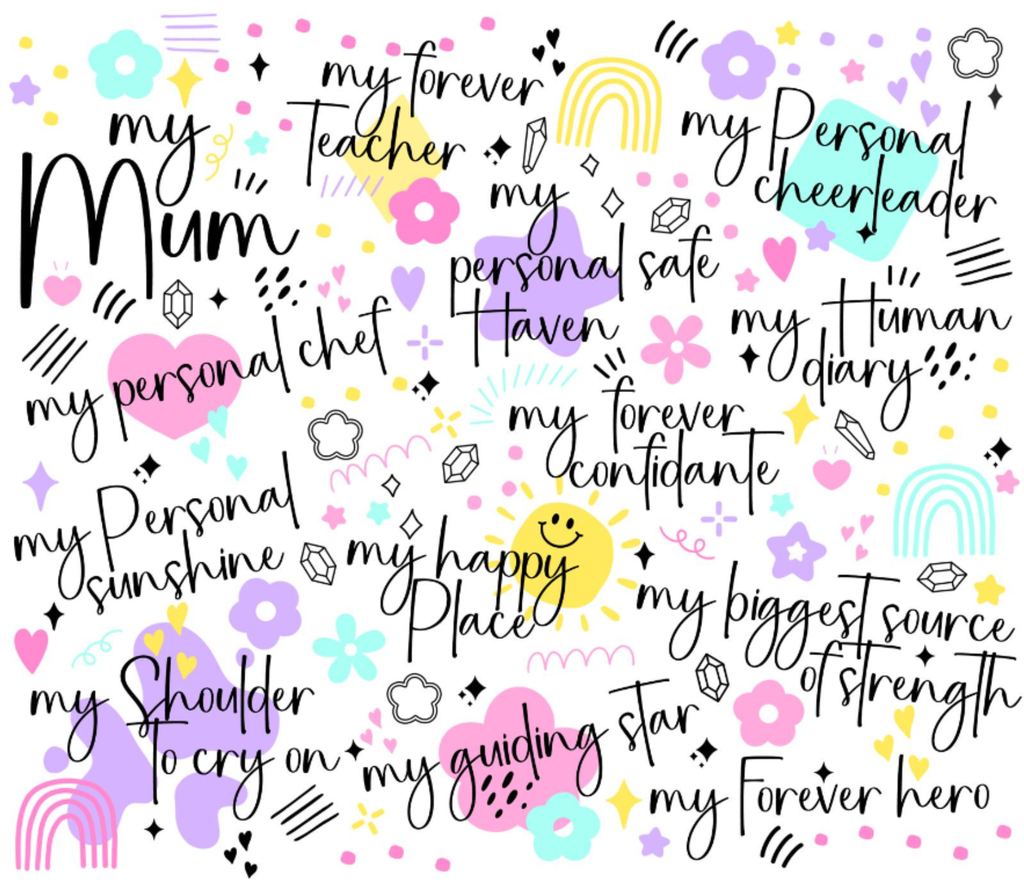 my
Mum
my forever
Teacher
my Personal
cheerleader
my
personal safe
Haven
my personal chef
my Human
diary
my forever
confidante
my Personal
sunshine
my happy
Place
my biggest source
of strength
my Shoulder
To cry on
my guiding star
my Forever hero